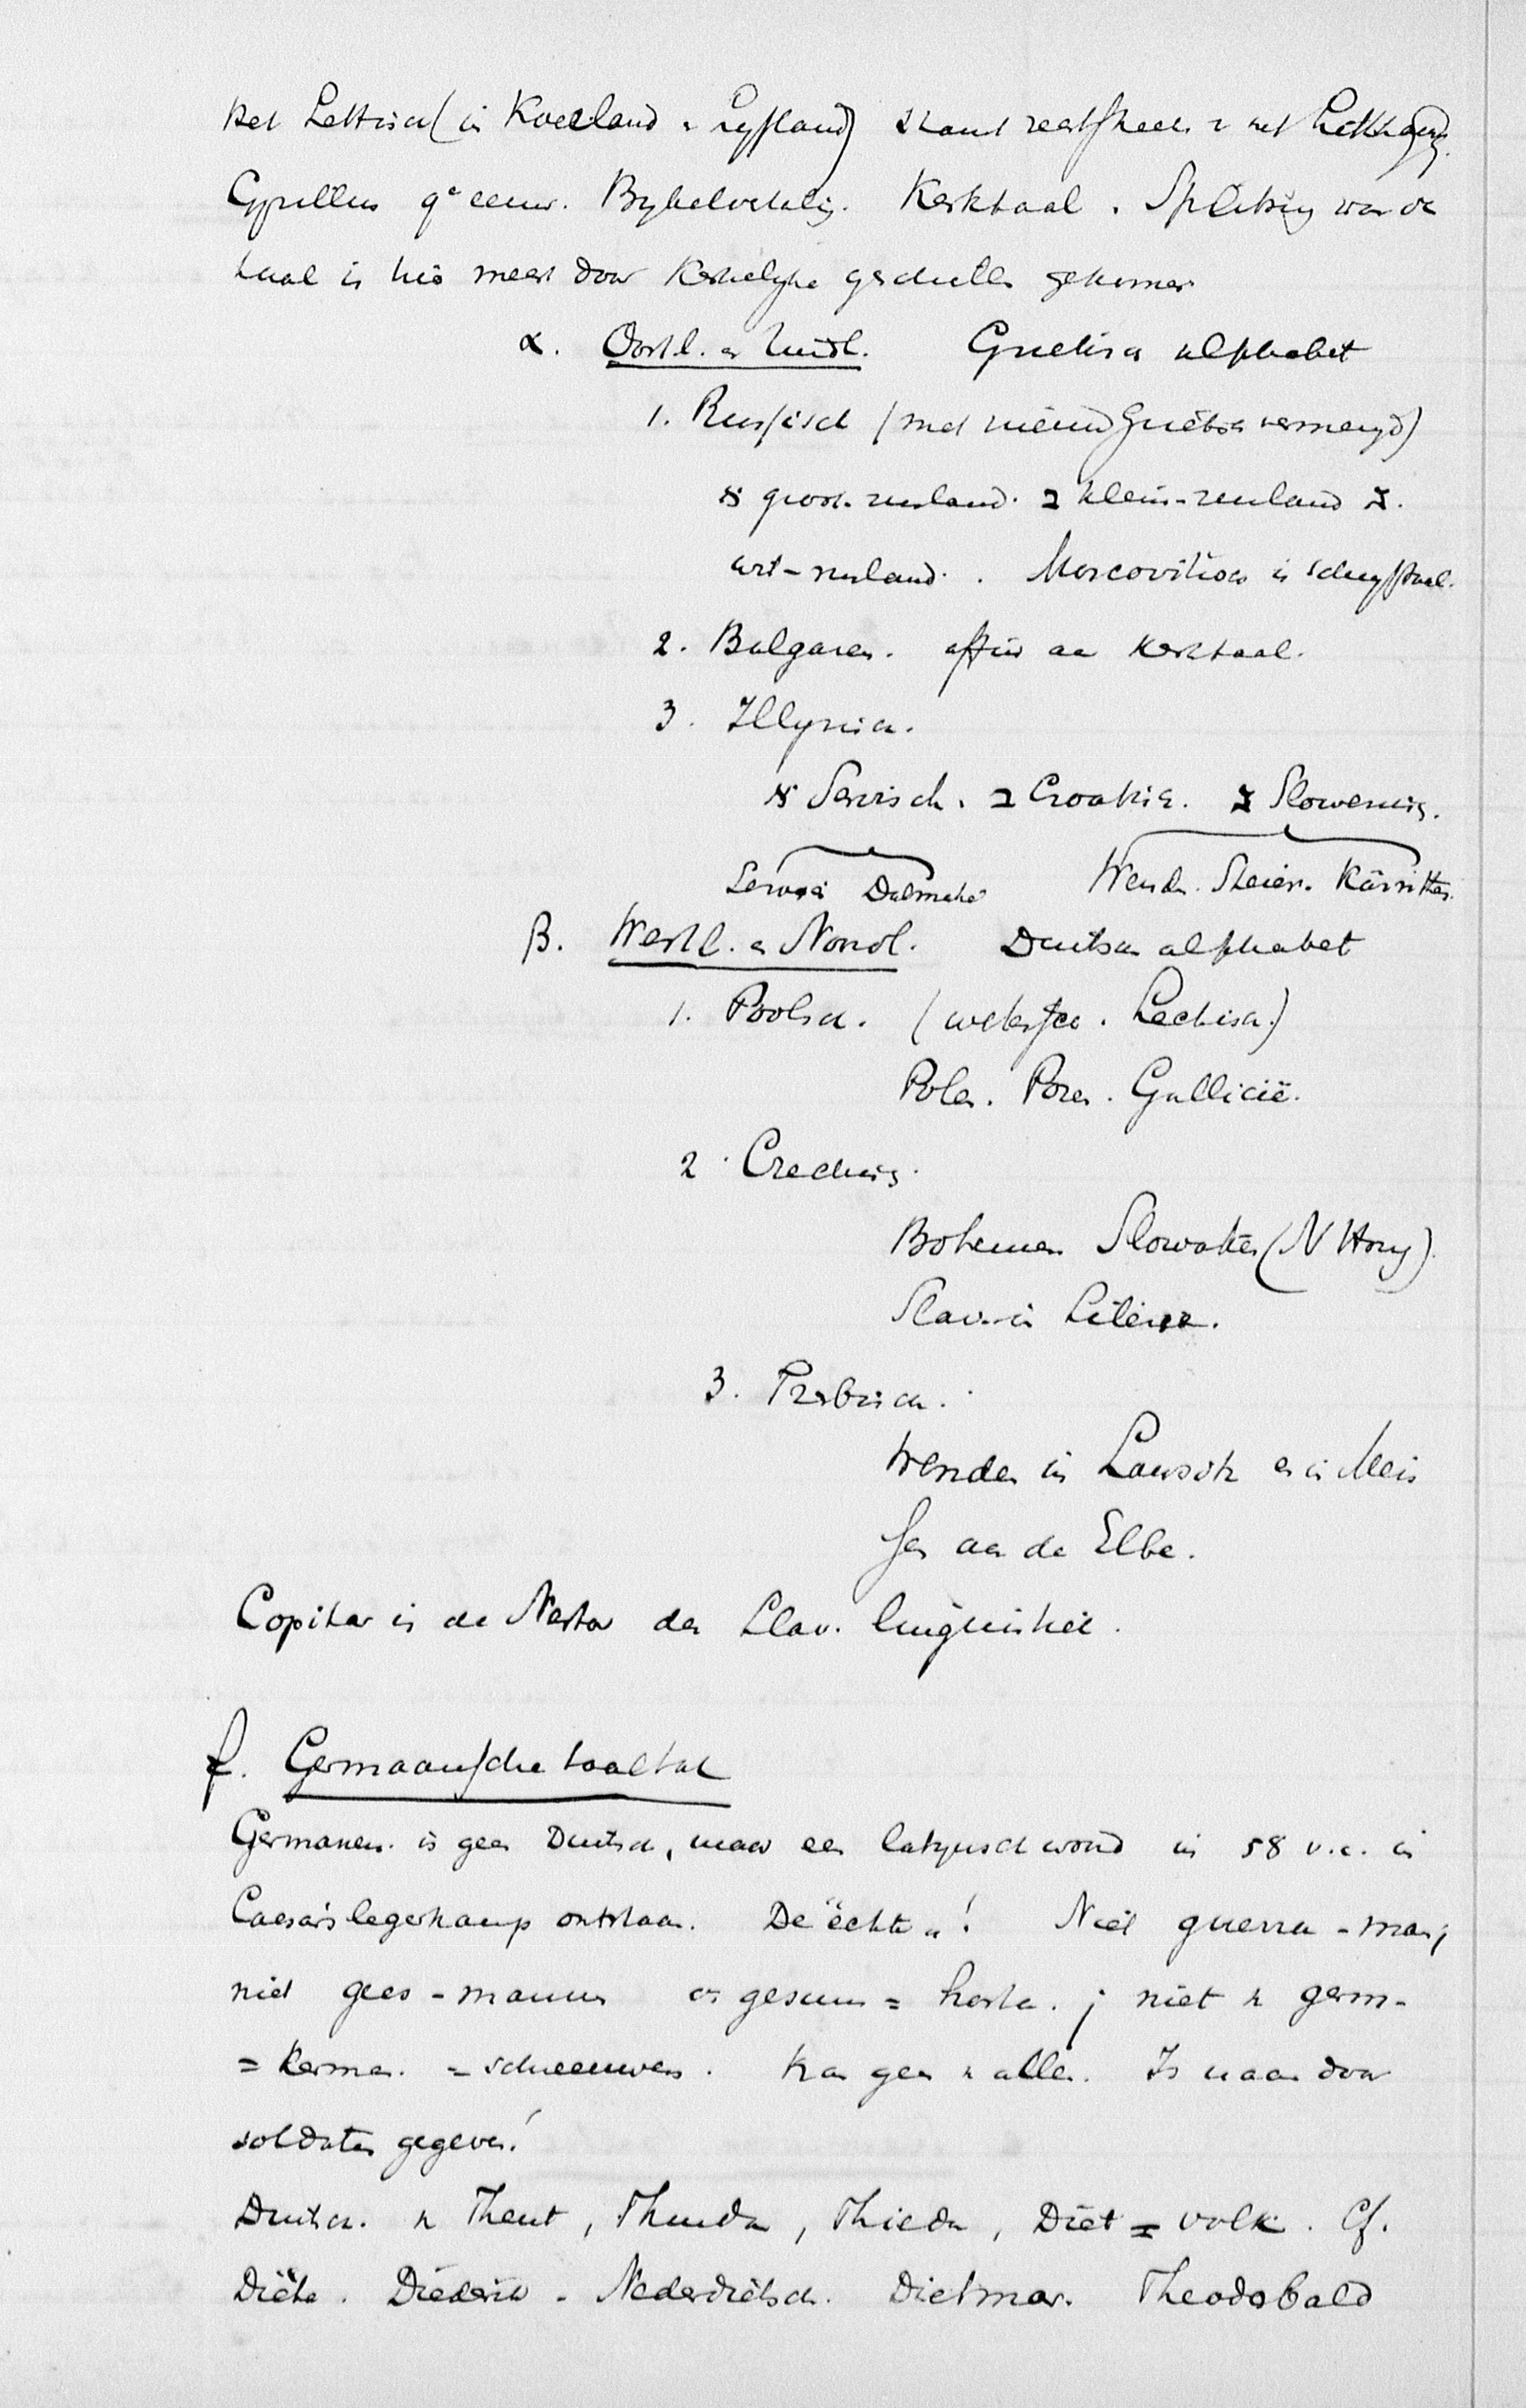 Het Lettisch (in Koerland & Lyfland) staat rechtstreeks
Cyrillus 9e eeuw. Bybelvertalig. Kerktaal. Splitsing van de
taal is hier meest door kerkelyke geschillen gekomen
α. Oostl. en Zuidl. Grieksch alphabet
1. Russisch (met nieuw Grieksch vermengd)
א groot-rusland. ב klein-rusland ג.
wit-rusland. Moscovitisch is schryftaal.
2. Bulgaren. affin aan kerktaal.
3. Illyrisch.
א Servisch. ב Croatisch. ג Slowenisch.
Servië Dalmatië Wenden. Steier. Kärnthen.
β. Westl. en Noordl. Duitsch alphabet
1. Poolsch. (Lechisch)
Polen. Posen. Gallicië.
2. Czechisch.
Bohemen Slowaken (N Hong).
Slaven in Silezië.
3.
Wenden in Lausitz en in Meis
sen aan de Elbe.
Copitar is de Nestor der Slav. linguistiek.
f. Germaansche taaltak
Germanen. is geen Duitsch, maar een latynsch woord in 58 v.c. in
Caesar's legerkamp ontstaan. De "echte"! Niet guerra-man,
niet gees-mannen gesum = hasta; niet v germ-
= kermen = schreeuwen. Kan geen v allen. Is naam door
soldaten gegeven!
Duitsch. v Theut, Thuda, Thieda, Diet = volk. Cf.
Diets. Diederik. Nederdietsch. Dietmar. Theodobald